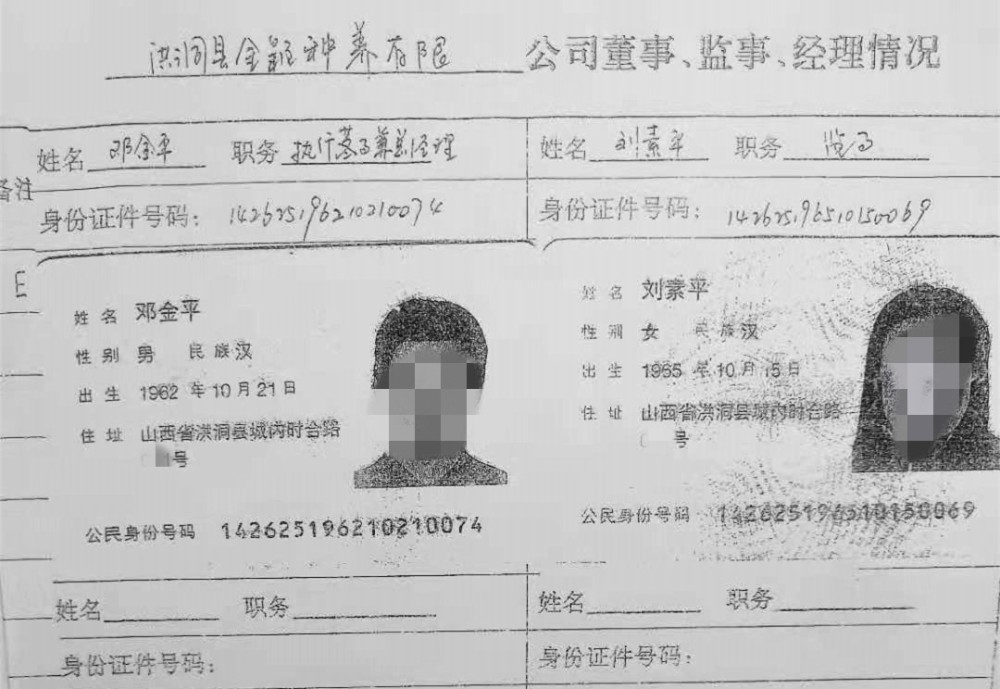 洪洞县金 种养有限 公司董事、监事、经理情况
姓名 邓金平 职务 执行董事兼总经理
姓名 刘素平 职务 监事
备注
身份证件号码：142625196210210074
身份证件号码：142625196510150069
姓名 邓金平
性别 男 民族 汉
出生 1962 年 10 月 21 日
住址 山西省洪洞县城内时 路
号
公民身份号码 142625196210210074
姓名 刘素平
性别 女 民族 汉
出生 1965 年 10 月 15 日
住址 山西省洪洞县城内时 路
号
公民身份号码 142625196510150069
姓名 职务
姓名 职务
身份证件号码：
身份证件号码：